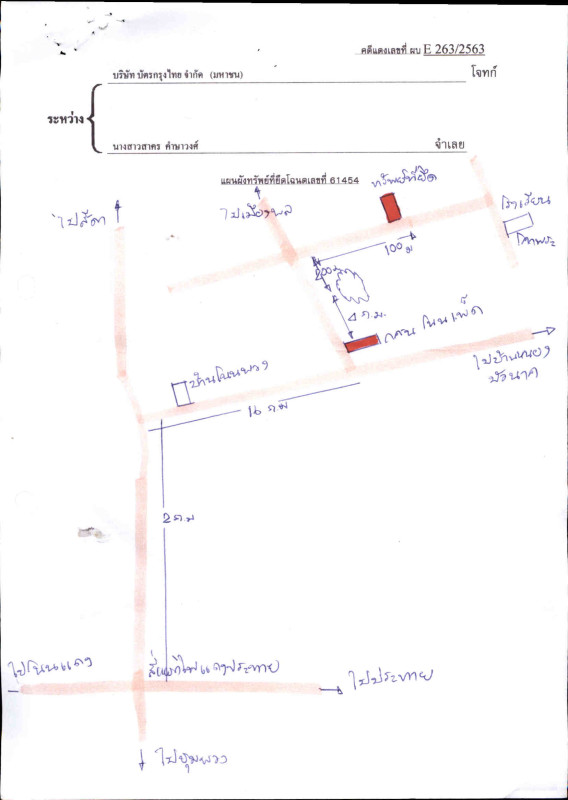 คดีแดงเลขที่ ผบ E 263/2563
บริษัท บัตรกรุงไทย จำกัด (มหาชน) โจทก์
ระหว่าง
นางสาวสาคร คำษาวงศ์ จำเลย
แผนผังทรัพย์ที่ยึดโฉนดเลขที่ 61454
ทรัพย์ที่ยึด
ไปสีดา
ไปเมืองพล
โรงเรียน
โคกพระ
100 ม
200
4 กม.
โนนเพ็ด
ไปบ้านหนอง
บัวนาค
บ้านโนนพวง
16 กม
2 กม
ไปโนนแดง
สี่แยกไฟแดงประทาย
ไปประทาย
ไปชุมพวง